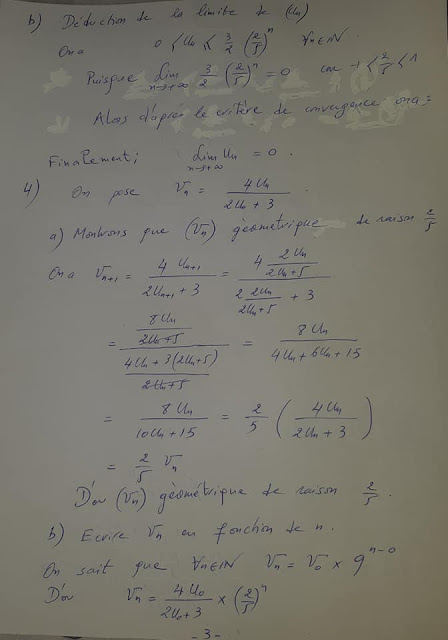 b) Déduction de la limite de (Un)
On a 0 < Un ≤ 3/2 (2/5)^n ∀n∈IN
Puisque lim_{n→+∞} 3/2 (2/5)^n = 0 car -1 < 2/5 < 1
Alors d'après le critère de convergence on a:
Finalement; lim_{n→+∞} Un = 0.
4) On pose Vn = 4Un / (2Un + 3)
a) Montrons que (Vn) géométrique de raison 2/5
On a Vn+1 = 4Un+1 / (2Un+1 + 3) = (4 2Un/(2Un+5)) / (2 2Un/(2Un+5) + 3)
= (8Un/(2Un+5)) / ((4Un + 3(2Un+5))/(2Un+5)) = 8Un / (4Un + 6Un + 15)
= 8Un / (10Un + 15) = 2/5 (4Un / (2Un + 3))
= 2/5 Vn
D'où (Vn) géométrique de raison 2/5.
b) Ecrire Vn en fonction de n.
On sait que ∀n∈IN Vn = V0 × q^{n-0}
D'où Vn = 4U0 / (2U0+3) × (2/5)^n
-3-